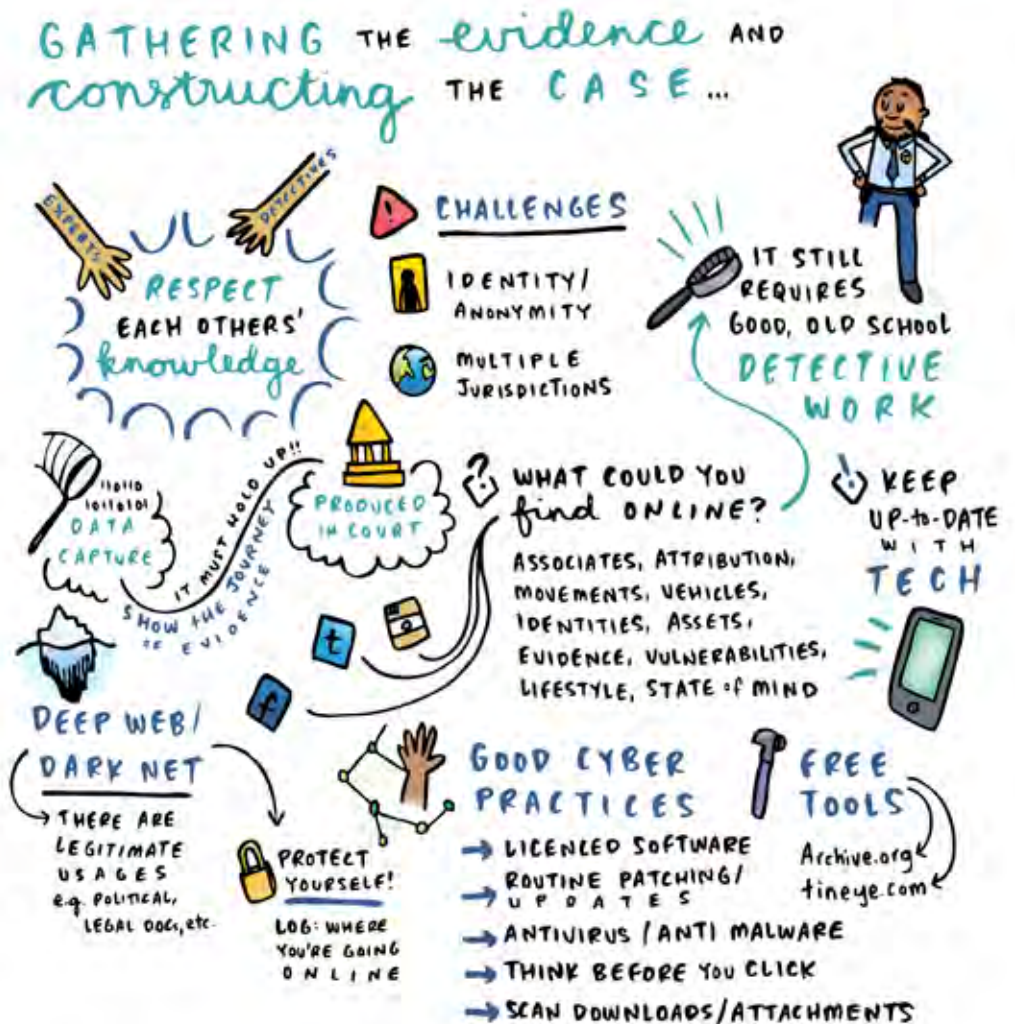 GATHERING THE evidence AND
constructing THE CASE...
EXPERTS
DETECTIVES
RESPECT
EACH OTHERS'
knowledge
CHALLENGES
IDENTITY/
ANONYMITY
MULTIPLE
JURISDICTIONS
IT STILL
REQUIRES
GOOD, OLD SCHOOL
DETECTIVE
WORK
110110
10110101
DATA
CAPTURE
IT MUST HOLD UP!!
SHOW THE JOURNEY
OF EVIDENCE
PRODUCED
IN COURT
?
WHAT COULD YOU
find ONLINE?
ASSOCIATES, ATTRIBUTION,
MOVEMENTS, VEHICLES,
IDENTITIES, ASSETS,
EVIDENCE, VULNERABILITIES,
LIFESTYLE, STATE of MIND
!
KEEP
UP-to-DATE
WITH
TECH
t
f
DEEP WEB/
DARK NET
THERE ARE
LEGITIMATE
USAGES
e.g. POLITICAL,
LEGAL DOCs, etc.
PROTECT
YOURSELF!
LOG: WHERE
YOU'RE GOING
ONLINE
GOOD CYBER
PRACTICES
→ LICENCED SOFTWARE
→ ROUTINE PATCHING/
→ UPDATES
→ ANTIVIRUS / ANTI MALWARE
→ THINK BEFORE YOU CLICK
→ SCAN DOWNLOADS/ATTACHMENTS
FREE
TOOLS
Archive.org
tineye.com